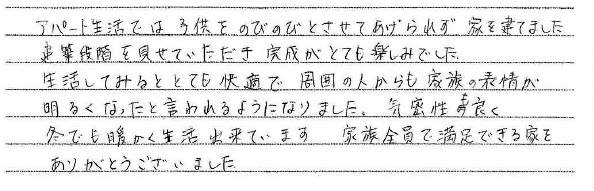 アパート生活では子供をのびのびとさせてあげられず 家を建てました
建築段階を見せていただき 完成がとても楽しみでした。
生活してみるととても快適で 周囲の人からも家族の表情が
明るくなったと言われるようになりました。気密性も良く
冬でも暖かく生活出来ています 家族全員で満足できる家を
ありがとうございました